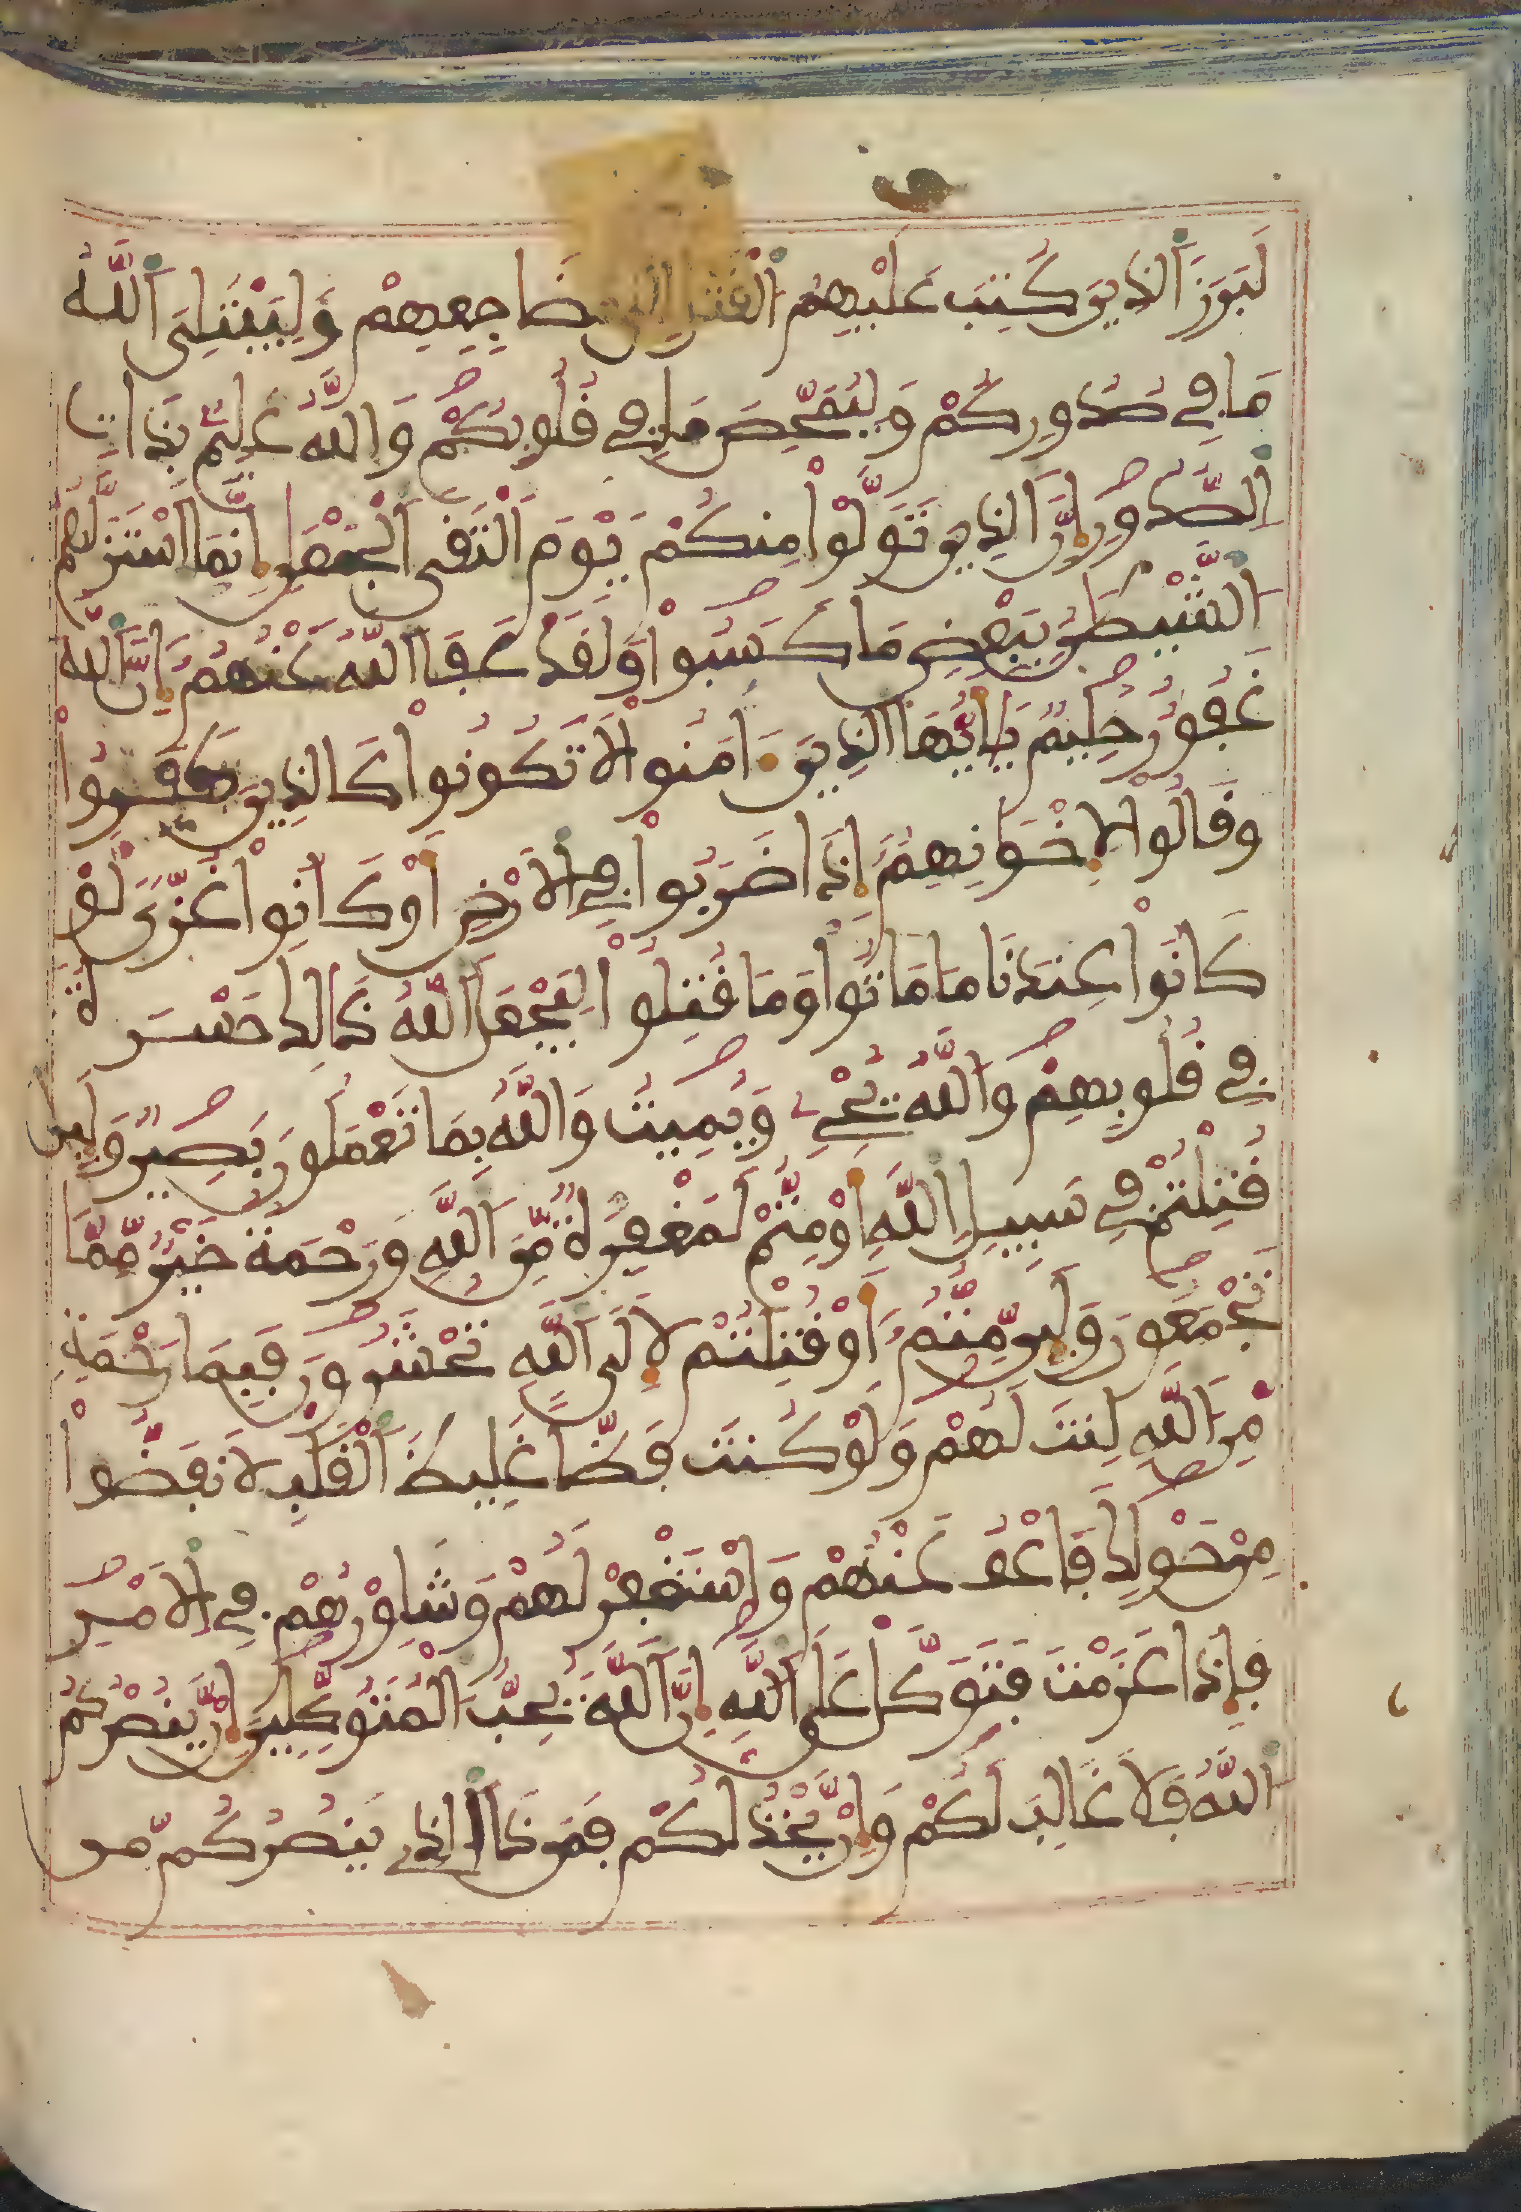 لَبَرَزَ ٱلذِينَ كُتِبَ عَلَيْهِمُ ٱلْقَتْلُ إِلَىٰ مَضَاجِعِهِمْ وَلِيَبْتَلِىَ ٱللَّهُ
مَا فِے صُدُورِكُمْ وَلِيُمَحِّصَ مَا فِے قُلُوبِكُمْ وَاللَّهُ عَلِيمٌ بِذَاتِ
ٱلصُّدُورِ إِنَّ ٱلذِينَ تَوَلَّوْاْ مِنكُمْ يَوْمَ ٱلْتَقَى ٱلْجَمْعَٰنِ إِنَّمَا ٱسْتَزَلَّهُمُ
ٱلشَّيْطَٰنُ بِبَعْضِ مَا كَسَبُواْ وَلَقَدْ عَفَا ٱللَّهُ عَنْهُمُۥ إِنَّ ٱللَّهَ
غَفُورٌ حَلِيمٌ يَٰأَيُّهَا ٱلذِينَ ءَامَنُواْ لَا تَكُونُواْ كَالذِينَ كَفَرُواْ
وَقَالُواْ لِإِخْوَٰنِهِمُۥ إِذَا ضَرَبُواْ فِے ٱلَارْضِ أَوْ كَانُواْ غُزّىً لَّوْ
كَانُواْ عِندَنَا مَا مَاتُواْ وَمَا قُتِلُواْ لِيَجْعَلَ ٱللَّهُ ذَٰلِكَ حَسْرَ ةً
فِے قُلُوبِهِمْ وَاللَّهُ يُحْيِۦ وَيُمِيتُ وَاللَّهُ بِمَا تَعْمَلُونَ بَصِيرٌ وَلَئِن
قُتِلْتُمْ فِے سَبِيلِ ٱللَّهِ أَوْ مِتُّمْ لَمَغْفِرَةٌ مِّنَ ٱللَّهِ وَرَحْمَةٌ خَيْرٌ مِّمَّا
تَجْمَعُونَ وَلَئِن مِّتُّمُۥ أَوْ قُتِلْتُمْ لَإِلَى ٱللَّهِ تُحْشَرُونَ فَبِمَا رَحْمَةٍ
مِّنَ ٱللَّهِ لِنتَ لَهُمْ وَلَوْ كُنتَ فَظّاً غَلِيظَ ٱلْقَلْبِ لَانفَضُّواْ
مِنْ حَوْلِكَ فَاعْفُ عَنْهُمْ وَاسْتَغْفِرْ لَهُمْ وَشَاوِرْهُمْ فِے ٱلَامْرِ
فَإِذَا عَزَمْتَ فَتَوَكَّلْ عَلَى ٱللَّهِ إِنَّ ٱللَّهَ يُحِبُّ ٱلْمُتَوَكِّلِينَ إِنْ يَّنصُرْكُمُ
ٱللَّهُ فَلَا غَالِبَ لَكُمْ وَإِنْ يَّخْذُلْكُمْ فَمَن ذَا ٱلذِے يَنصُرُكُم مِّن